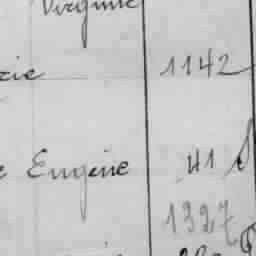 Virginie
rie 1142
e Eugène 41
1327